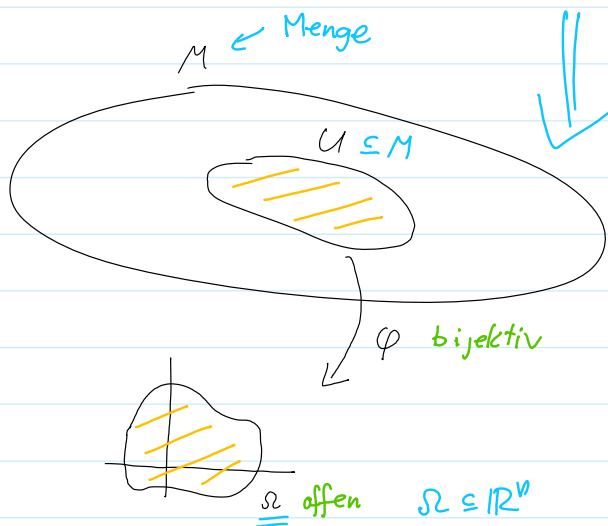 M ← Menge
U ⊆ M
φ bijektiv
Ω offen Ω ⊆ ℝⁿ